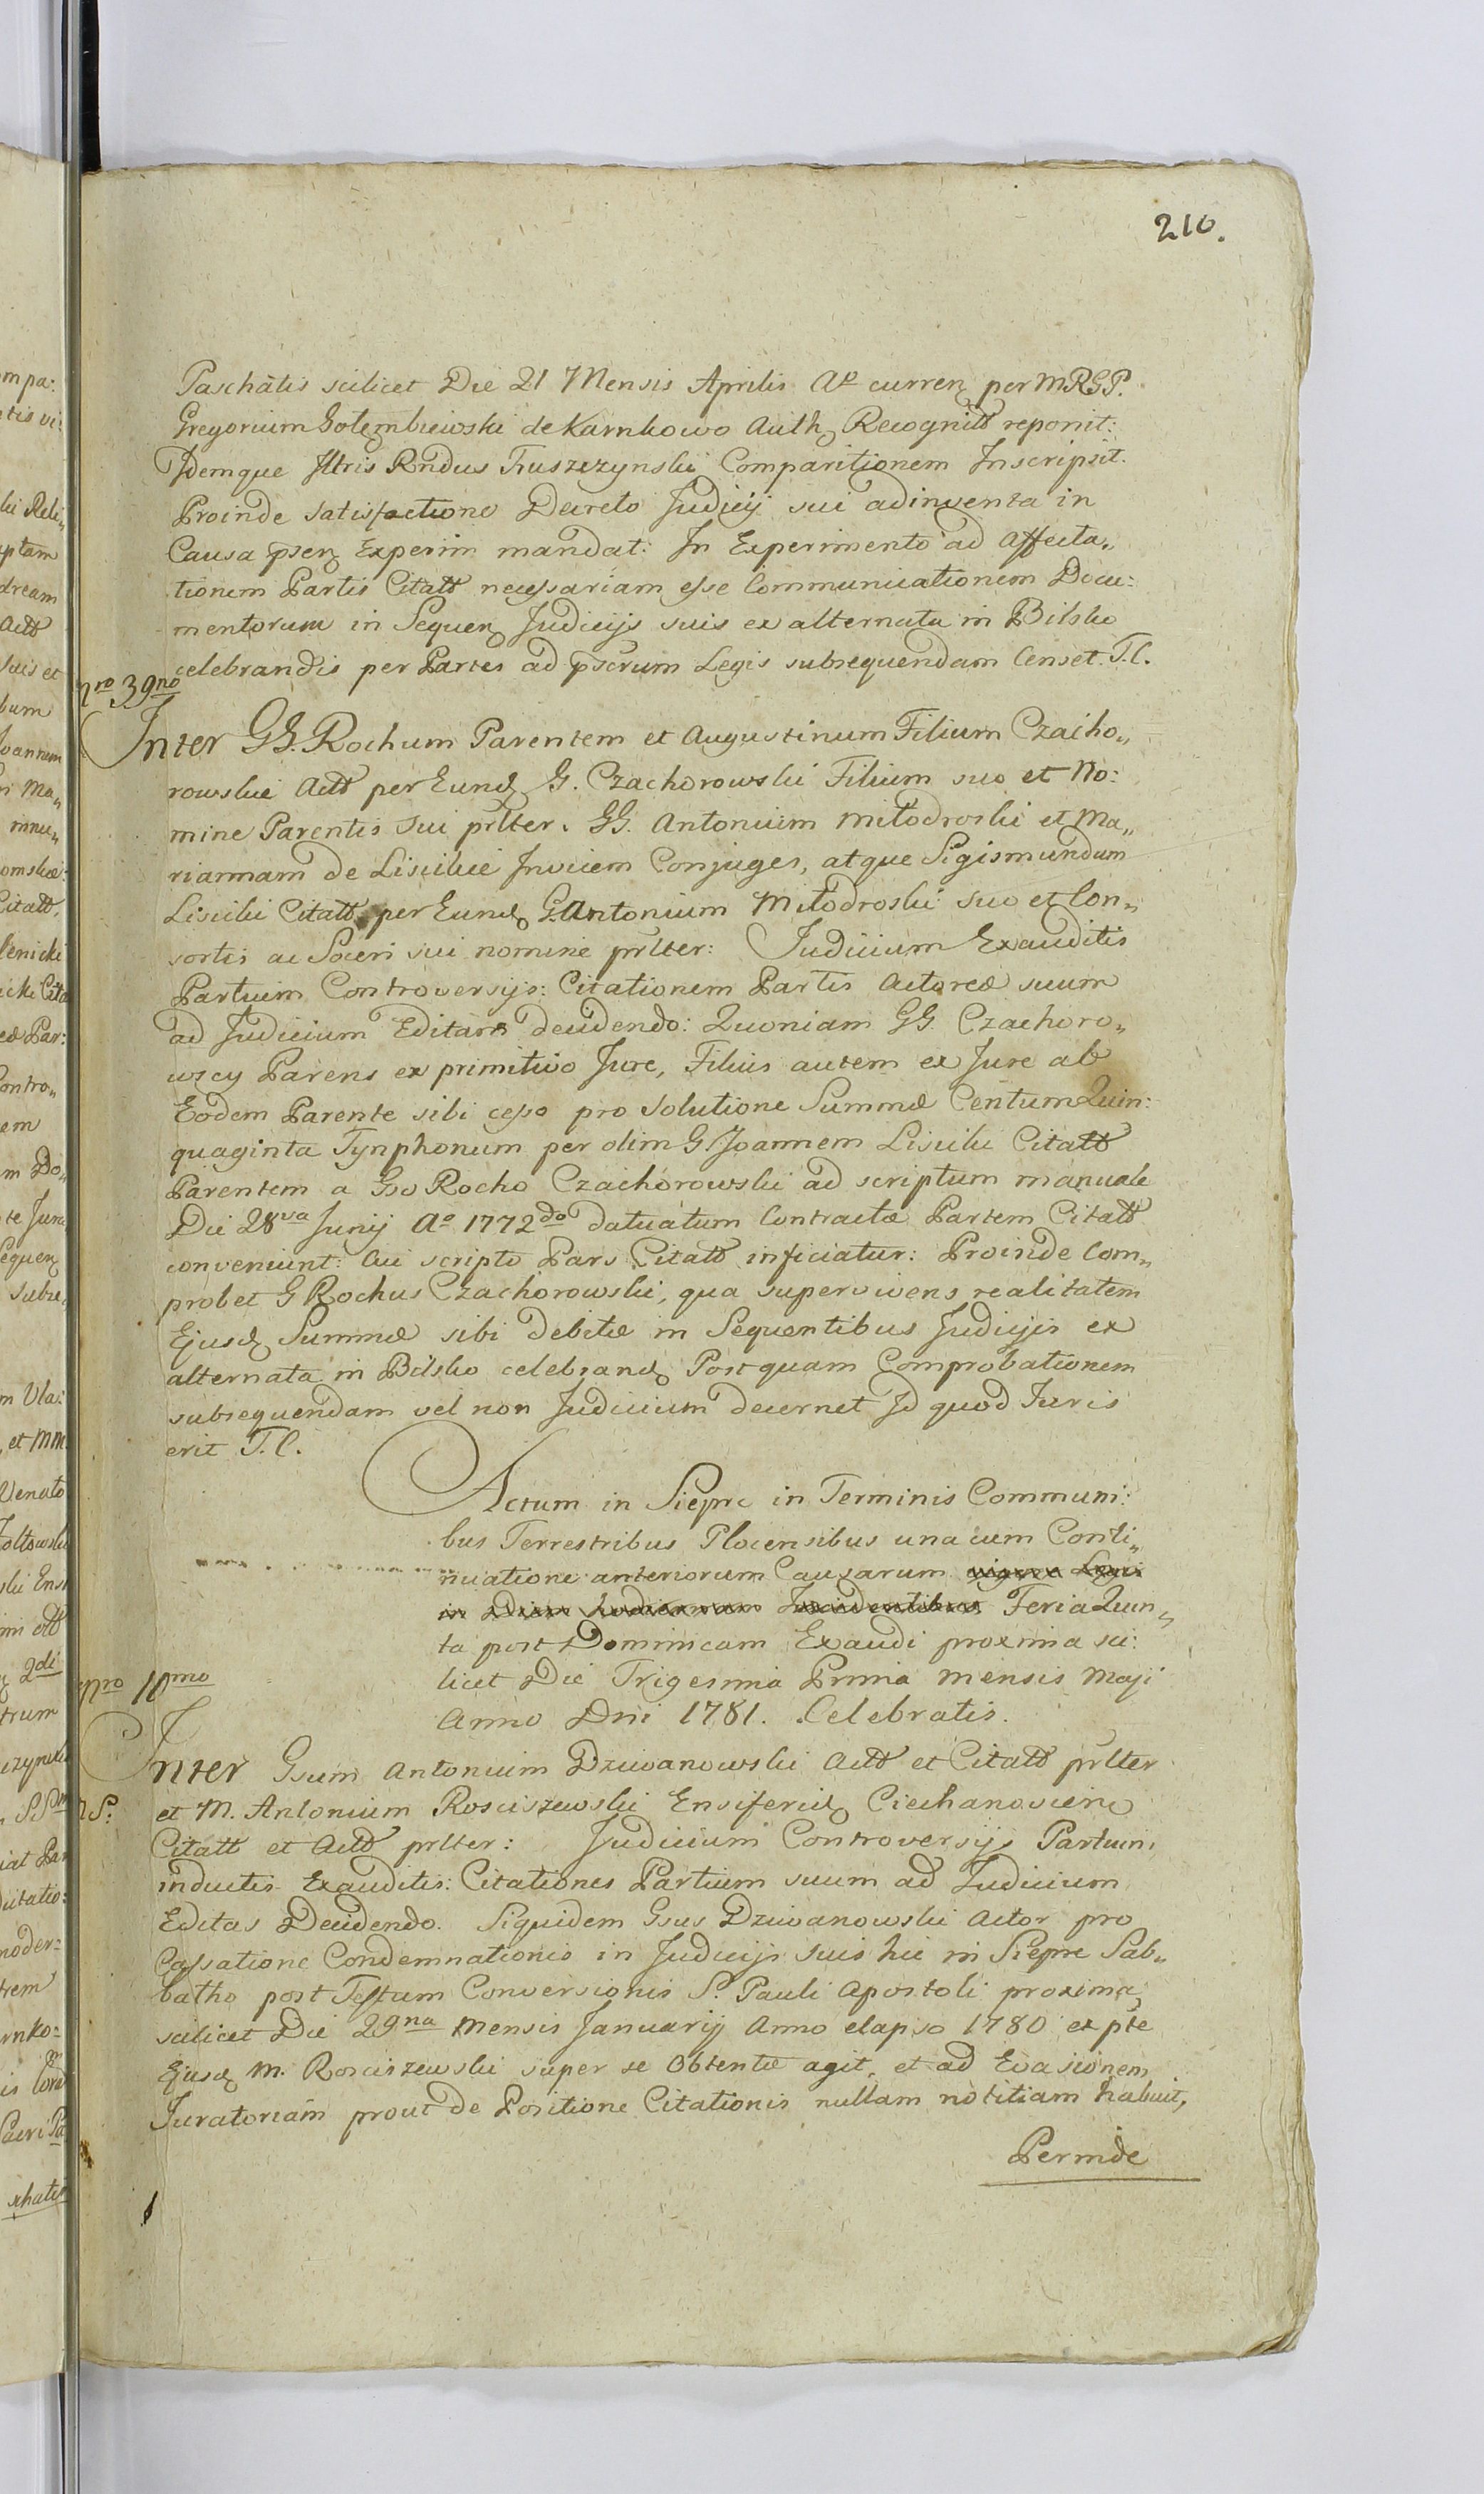 210.
Paschātis scilicet Die 21 Mensis Aprilis Ao curren per MRGP.
Gregorium Gołembiewski de Karnkowo Auth Recognitt reponit:
Idemque Illris Rndus Truszczynski Comparitionem Inscripsit.
Proinde satisfactione Decreto Judicij sui adinventa in
Causa pser Experim mandat: In Experimento ad Affecta„
tionem Partis Citatt necessariam esse Communicationem Docu:
mentorum in Sequen Judicijs suis ex alternata in Bilsko
celebrandis per Partes ad pscrum Legis subsequendam Censet. T.C.
nro 39no
Inter GG. Rochum Parentem et Augustinum Filium Czacho„
rowskie Actt per Eund G. Czachorowski Filium suo et No:
mine Parentis sui prlter. GG. Antonium Miłodroski et Ma„
riannam de Liscikie Invicem Conjuges, atque Sigismundum
Liscikie Citatt per Eund G. Antonium Miłodroski suo et Con„
sortis ac Soceri sui nomine prlter: Judicium Exauditis
Partium Controversijs: Citationem Partis Actoreæ suum
ad Judicium Editam decidendo: Quoniam GG Czachoro„
wscy Parens ex primitivo Jure, Filius autem ex Jure ab
Eodem Parente sibi cesso pro solutione Summæ Centum Quin:
quaginta Tynphonum per olim G Joannem Lisciki Citatt
Parentem a Gso Rocho Czachorowski ad scriptum manuale
Die 28va Junij Ao 1772do datuatum Contractæ Partem Citatt
conveniunt: Cui scripto Pars Citatt inficiatur: Proinde Com„
probet G Rochus Czachorowski, qua supervivens realitatem
Ejusd Summæ sibi debitæ in Sequentibus Judicijs ex
alternata in Bilsko celebrand Postquam Comprobationem
subsequendam vel non Judicium decernet Id quod Juris
erit T.C.
Actum in Sieprc in Terminis Communi:
bus Terrestribus Plocensibus una cum Conti„
nuatione anteriorum Causarum vigore Legis
in Diem hodiernam Incidentibus Feria Quin„
ta post Dominicam Exaudi proxima sci:
licet Die Trigesima Prima Mensis Maji
Anno Dni 1781. Celebratis.
nro 10mo
Inter Gsum Antonium Dziwanowski Actt et Citatt prlter
et M. Antonium Rosciszewski Ensiferid Ciechanoviene
Citatt et Actt prlter: Judicium Controversijs Partium
inductis Exauditis: Citationes Partium suum ad Judicium
Editas Decidendo. Siquidem Gsus Dziwanowski Actor pro
Cassatione Condemnationis in Judicijs suis hic in Sieprc Sab„
batho post Festum Conversionis S. Pauli Apostoli proxima
scilicet Die 29na Mensis Januarij Anno elapso 1780 ex pte
Ejusd M. Rosciszewski super se Obtentæ agit, et ad Evasionem
Juratoriam prout de Positione Citationis nullam notitiam habuit,
Perinde